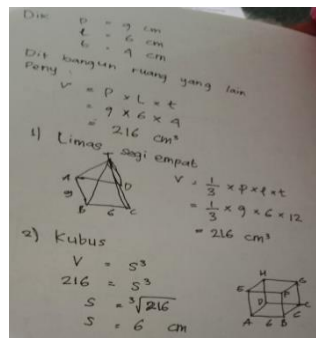 Dik P = 9 cm
l = 6 cm
t = 4 cm
Dit bangun ruang yang lain
Peny :
V = P x L x t
= 9 x 6 x 4
= 216 cm³
1) Limas segi empat
T
A
D
9
B 6 C
V = 1/3 x p x l x t
= 1/3 x 9 x 6 x 12
= 216 cm³
2) Kubus
V = s³
216 = s³
S = ³√216
S = 6 cm
H G
E F
D C
A 6 B 6